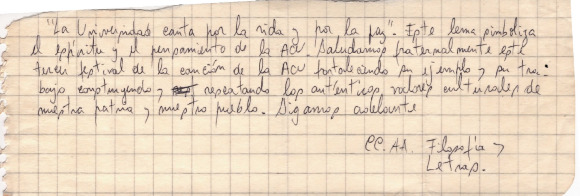 "La Universidad canta por la vida y por la paz". Este lema simboliza
el espíritu y el pensamiento de la ACU Saludamos fraternalmente este
tercer festival de la canción de la ACU fortaleciendo su ejemplo y su tra-
bajo construyendo y rescatando los auténticos valores culturales de
nuestra patria y nuestro pueblo. Sigamos adelante
CC.AA. Filosofía y
Letras.